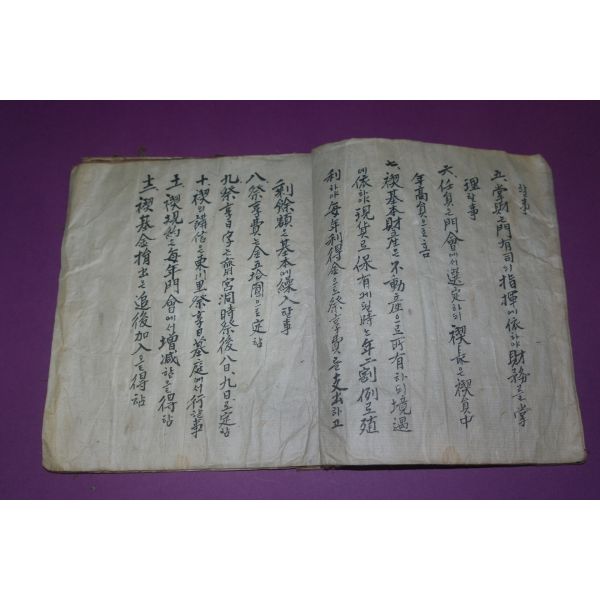 할事
五、掌財는 門有司의 指揮에 依하야 財務를 掌
理할事
六、任員은 門會에서 選定하되 禊長은 禊員中
年高員으로 홈
七、禊基本財産은 不動産으로 所有하되 境遇
에 依하야 現貨로 保有게될時는 年二割例로 殖
利하야 每年利得金으로 祭享費를 支出하고
剩餘額은 基本에 繰入할事
八、祭享費는 金五拾圓으로 定함
九、祭享日字는 齋宮洞時祭後 八日、九日로 定함
十、禊의 講信은 東川里祭享日 墓庭에서 行할事
十一、禊規約은 每年門會에서 增减함을 得함
十二、禊基金捐出은 追後加入으로 得함